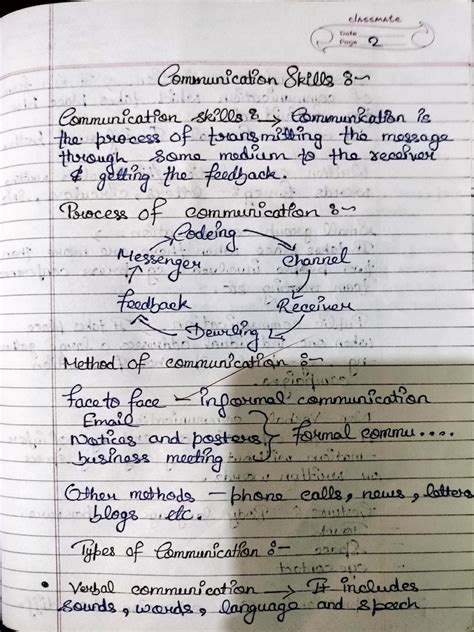 classmate
Date
Page 2
Communication Skills :-
Communication skills :→ Communication is
the process of transmitting the message
through some medium to the receiver
& getting the feedback.
Process of communication :-
Codeing
Messenger Channel
Feedback Receiver
Method of communication :-
face to face - informal communication
Email
Notices and posters formal commu....
business meeting
Other methods - phone calls, news, letters
blogs etc.
Types of Communication :-
• Verbal communication → It includes
sounds, words, language and speech